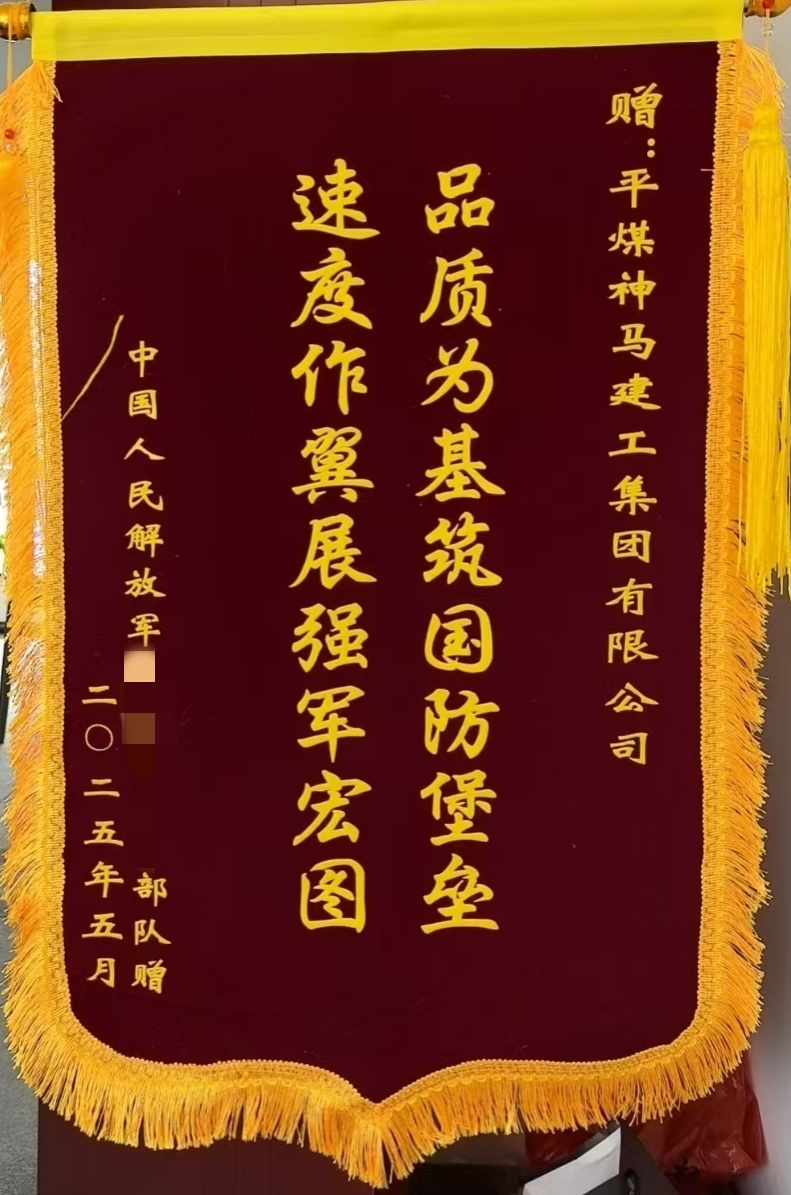 赠：平煤神马建工集团有限公司
品质为基筑国防堡垒
速度作翼展强军宏图
中国人民解放军
部队赠
二〇二五年五月